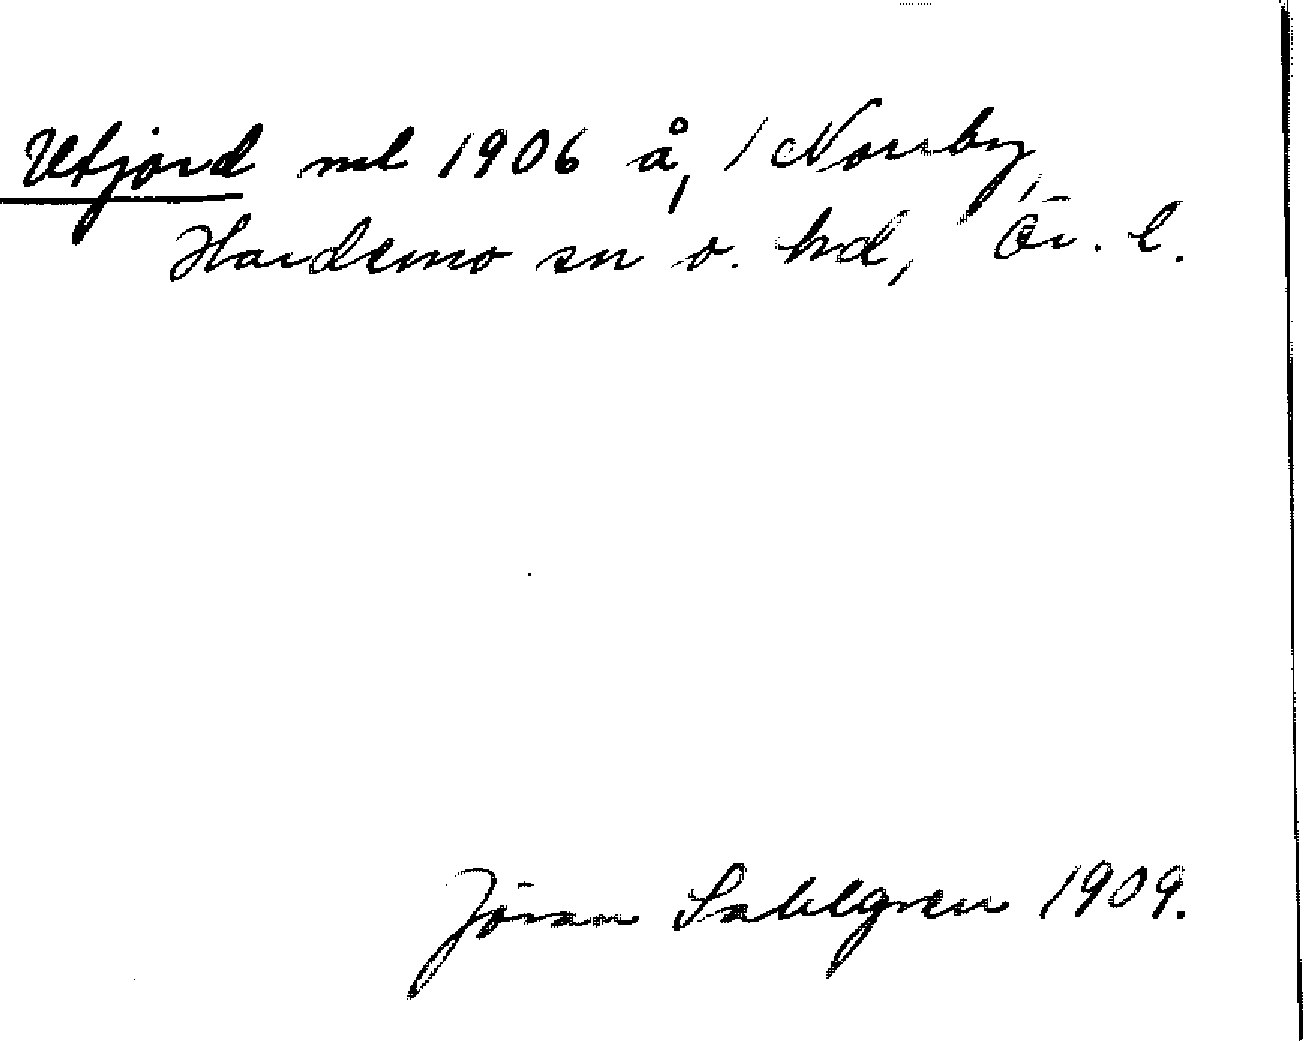 Utjord ml 1906 å, 1 Norrby,
Hardemo sn o. hd, Ör. l.
Jöran Sahlgren 1909.